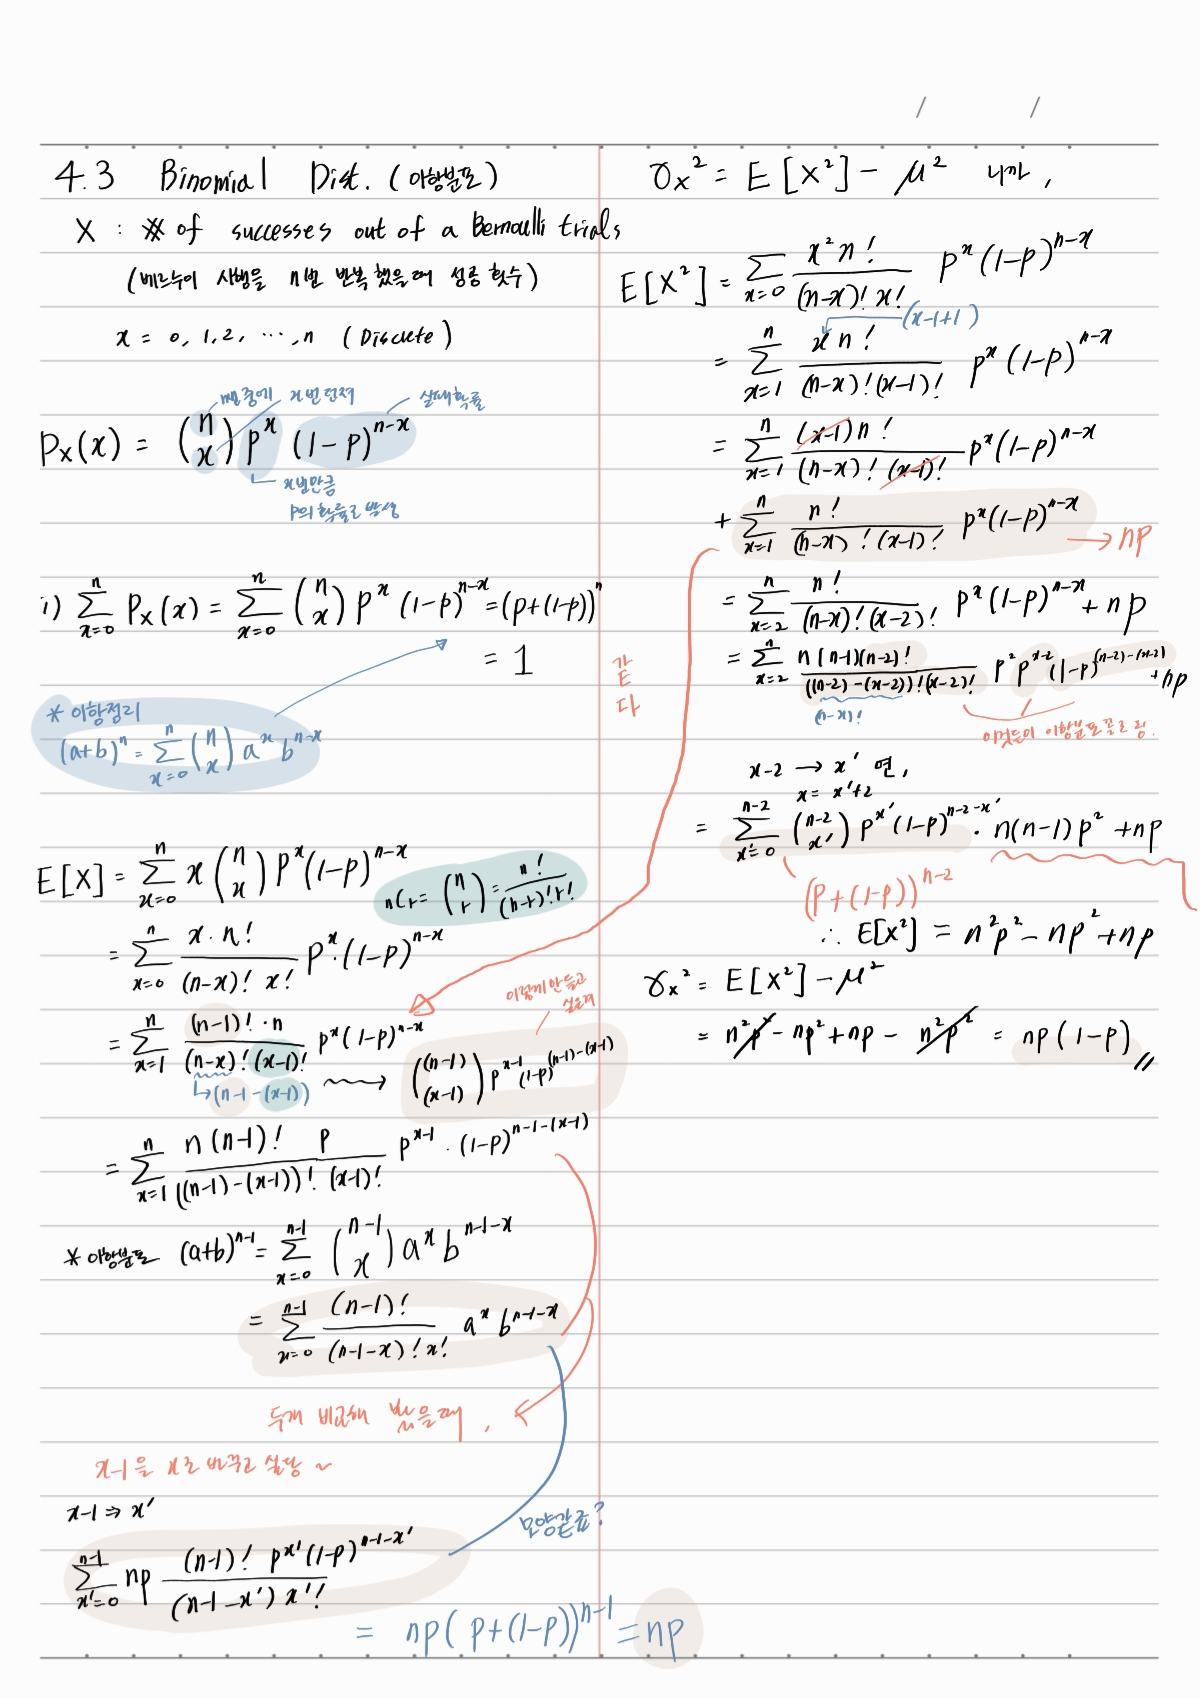 4.3 Binomial Dist. (이항분포)
X : # of successes out of a Bernoulli trials
(베르누이 시행을 n번 반복했을때 성공 횟수)
x = 0, 1, 2, ⋯, n (Discrete)
n번 중에 x번 던져 실패확률
Pₓ(x) = (n x) p^x (1-p)^(n-x)
x번만큼
P의 확률로 발생
i) Σ_{x=0}^{n} Pₓ(x) = Σ_{x=0}^{n} (n x) p^x (1-p)^(n-x) = (p+(1-p))^n
= 1
* 이항정리
(a+b)^n = Σ_{x=0}^{n} (n x) a^x b^(n-x)
E[X] = Σ_{x=0}^{n} x (n x) p^x (1-p)^(n-x)
nCr = (n r) = n! / (n-r)! r!
= Σ_{x=0}^{n} x·n! / (n-x)! x! p^x·(1-p)^(n-x)
= Σ_{x=1}^{n} (n-1)!·n / (n-x)! (x-1)! p^x (1-p)^(n-x)
↳ (n-1-(x-1)) → ((n-1) (x-1)) p^(x-1) (1-p)^((n-1)-(x-1))
이렇게 만들고
싶은거
= Σ_{x=1}^{n} n(n-1)! p / ((n-1)-(x-1))! (x-1)! p^(x-1)·(1-p)^(n-1-(x-1))
* 이항분포 (a+b)^(n-1) = Σ_{x=0}^{n-1} (n-1 x) a^x b^(n-1-x)
= Σ_{x=0}^{n-1} (n-1)! / (n-1-x)! x! a^x b^(n-1-x)
두개 비교해 봤을때,
x-1을 x로 바꾸고 싶당 ~
x-1 ⇒ x'
모양같죠?
Σ_{x'=0}^{n-1} np (n-1)! p^x' (1-p)^(n-1-x') / (n-1-x') x'!
= np(p+(1-p))^(n-1) = np
σₓ² = E[X²] - μ² 니까,
E[X²] = Σ_{x=0} x² n! / (n-x)! x! p^x (1-p)^(n-x)
(x-1+1)
= Σ_{x=1}^{n} x n! / (n-x)! (x-1)! p^x (1-p)^(n-x)
= Σ_{x=1}^{n} (x-1) n! / (n-x)! (x-1)! p^x (1-p)^(n-x)
+ Σ_{x=1}^{n} n! / (n-x)! (x-1)! p^x (1-p)^(n-x) → np
같다
= Σ_{x=2}^{n} n! / (n-x)! (x-2)! p^x (1-p)^(n-x) + np
= Σ_{x=2}^{n} n(n-1)(n-2)! / ((n-2)-(x-2))! (x-2)! p² p^(x-2) (1-p)^((n-2)-(x-2)) + np
(n-x)!
이것들이 이항분포 꼴로 됨.
x-2 → x' 면,
x = x'+2
= Σ_{x'=0}^{n-2} (n-2 x') p^x' (1-p)^(n-2-x') · n(n-1)p² + np
(P+(1-p))^(n-2)
∴ E[X²] = n²p² - np² + np
σₓ² = E[X²] - μ²
= n²p² - np² + np - n²p² = np(1-p)